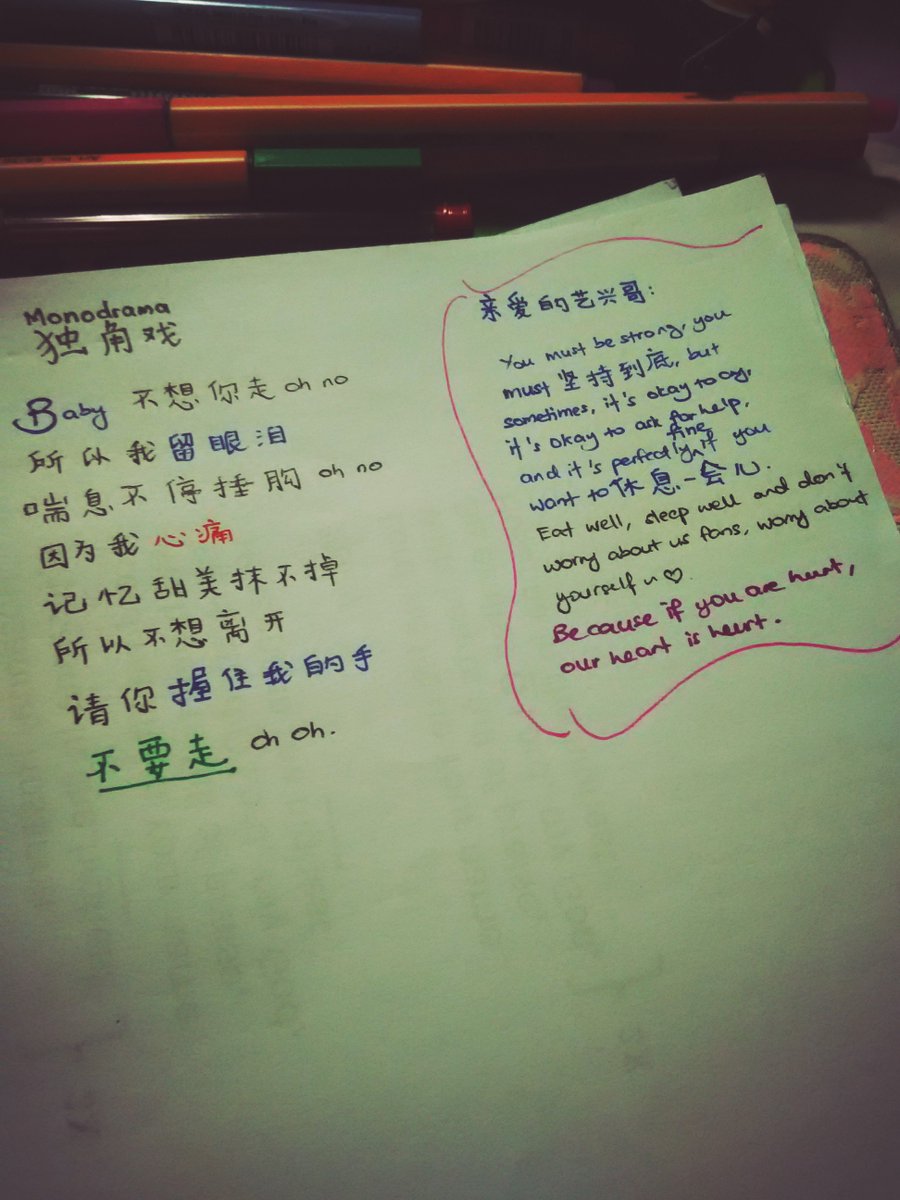 Monodrama
独角戏
Baby 不想你走 oh no
所以我留眼泪
喘息不停捶胸 oh no
因为我心痛
记忆甜美抹不掉
所以不想离开
请你握住我的手
不要走 oh oh.
亲爱的艺兴哥:
You must be strong, you
must 坚持到底, but
sometimes, it's okay to cry,
it's okay to ask for help,
and it's perfectly fine if you
want to 休息一会儿.
Eat well, sleep well and don't
worry about us fans, worry about
yourself u ♡.
Because if you are heurt,
our heart is heurt.